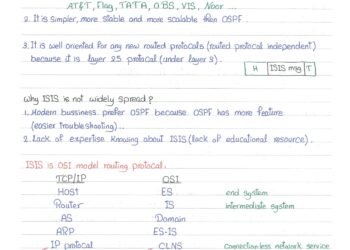 AT&T, Flag, TATA, OBS, VIS, Noor ...
2. It is simpler, more stable and more scalable than OSPF.
3. It is well oriented for any new routed protocols (routed protocol independent)
because it is layer 2.5 protocal (under layer 3).
H ISIS msg T
Why ISIS is not widely spread?
1. Modern bussiness prefer OSPF because OSPF has more feature
(easier troubleshooting)...
2. Lack of expertise Knowing about ISIS (lack of educational resource).
ISIS is OSI model routing protocal:
TCP/IP OSI
HOST ES end system
Router IS intermediate system
AS Domain
ARP ES-IS
IP protocal CLNS connectionless network service